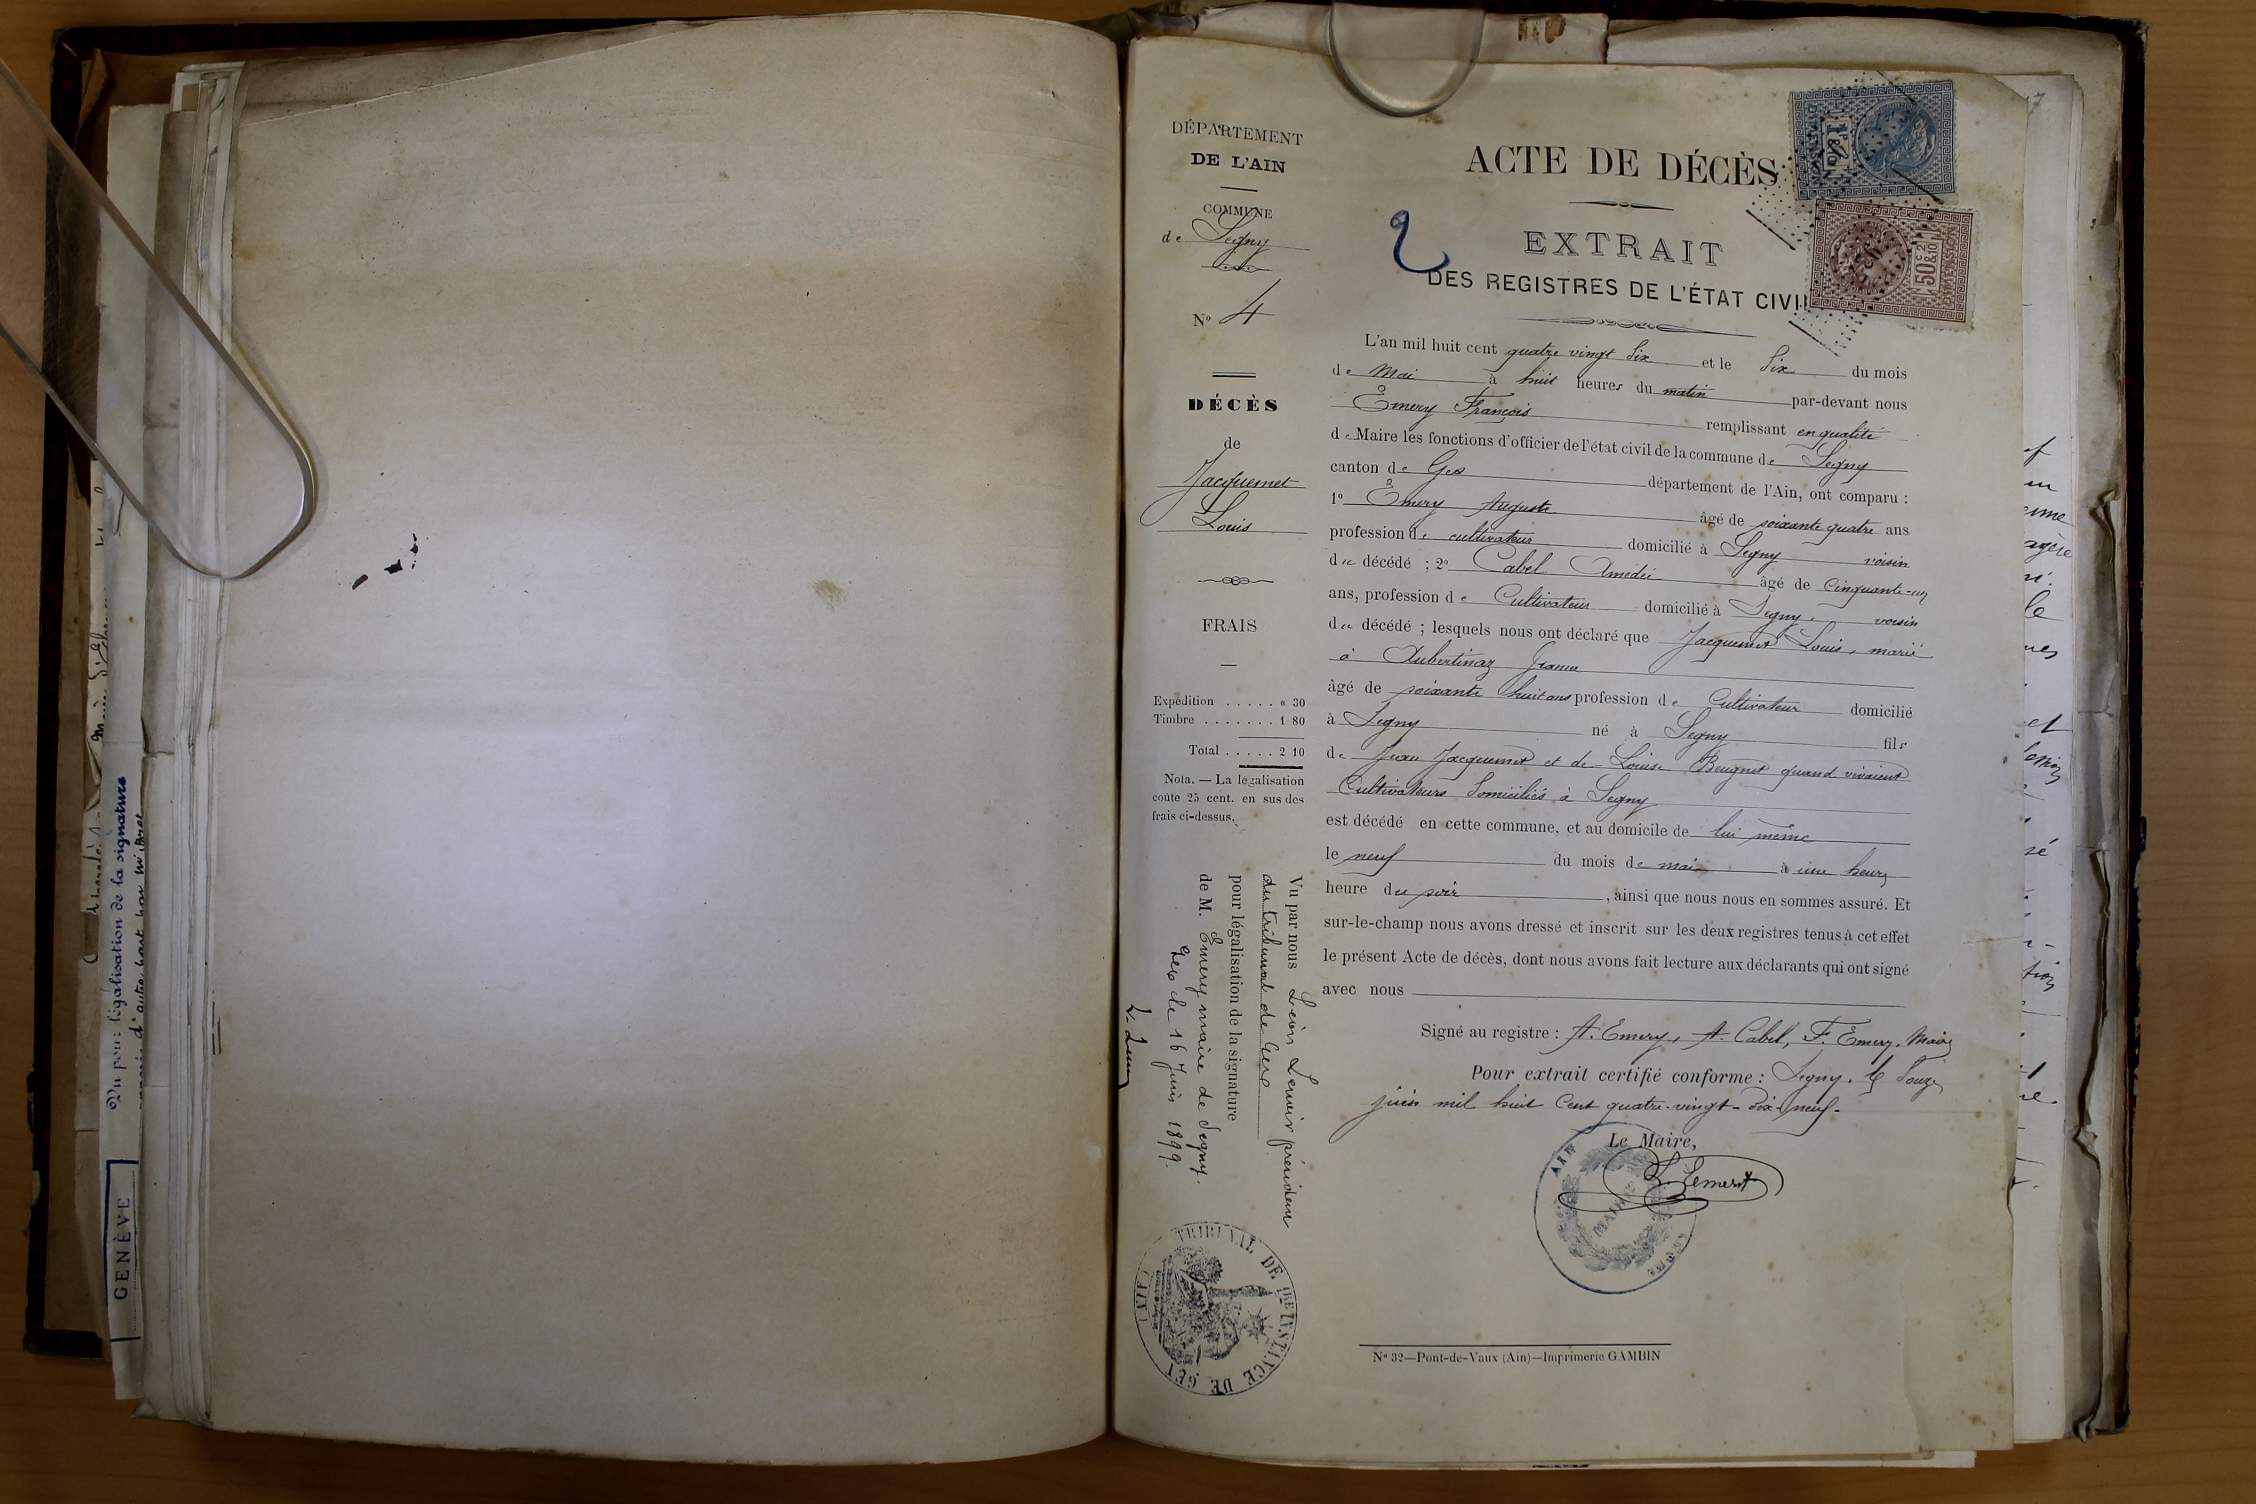 DÉPARTEMENT
DE L'AIN
COMMUNE
de Segny
N° 4
DÉCÈS
de
Jacquemet
Louis
FRAIS
Expédition . . . . . « 30
Timbre . . . . . . . 1 80
Total . . . . . 2 10
Nota. — La légalisation
coûte 25 cent. en sus des
frais ci-dessus.
Vu par nous Léon Lenoir président
du tribunal de Gex
pour légalisation de la signature
de M. Emery maire de Segny.
Gex le 16 Juin 1899.
TRIBUNAL DE 1RE INSTANCE DE GEX
(AIN)
ACTE DE DÉCÈS
2
EXTRAIT
DES REGISTRES DE L'ÉTAT CIVIL
50c
L'an mil huit cent quatre vingt dix et le dix du mois
de Mai à huit heures du matin par-devant nous
Emery François remplissant en qualité
de Maire les fonctions d'officier de l'état civil de la commune de Segny
canton de Gex département de l'Ain, ont comparu :
1° Emery Auguste âgé de soixante quatre ans
profession de cultivateur domicilié à Segny voisin
du décédé ; 2° Cabel Amédée âgé de cinquante-un
ans, profession de Cultivateur domicilié à Segny, voisin
du décédé ; lesquels nous ont déclaré que Jacquemet Louis, marié
à Aubertinaz Jeanne
âgé de soixante huit ans profession de Cultivateur domicilié
à Segny né à Segny fils
de Jean Jacquemet et de Louise Beugnet quand vivaient
Cultivateurs domiciliés à Segny
est décédé en cette commune, et au domicile de lui même
le neuf du mois de mai à une heure
heure du soir, ainsi que nous nous en sommes assuré. Et
sur-le-champ nous avons dressé et inscrit sur les deux registres tenus à cet effet
le présent Acte de décès, dont nous avons fait lecture aux déclarants qui ont signé
avec nous
Signé au registre : A. Emery, A. Cabel, F. Emery, Maire
Pour extrait certifié conforme : Segny, le douze
juin mil huit cent quatre-vingt-dix-neuf.
Le Maire,
AIN
MAIRIE
N° 32—Pont-de-Vaux (Ain)—Imprimerie GAMBIN
Vu pour légalisation de la signature
GENÈVE